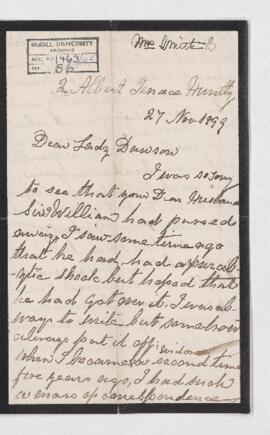 Mrs Smith B
McGILL UNIVERSITY
ARCHIVES
ACC. NO. 1463
REF. 56
2 Albert Terrace Huntly
27 Nov 1899
Dear Lady Dawson
I was so sorry
to see that your Dear Husband
Sir William had passed
away, I saw some time ago
that he had, had a paral-
-ytic shock but hoped that
he had got over it. I was al-
ways to write but somehow
always put it off
When I became a widow a second time
five years ago, I had such
a mass of correspondence